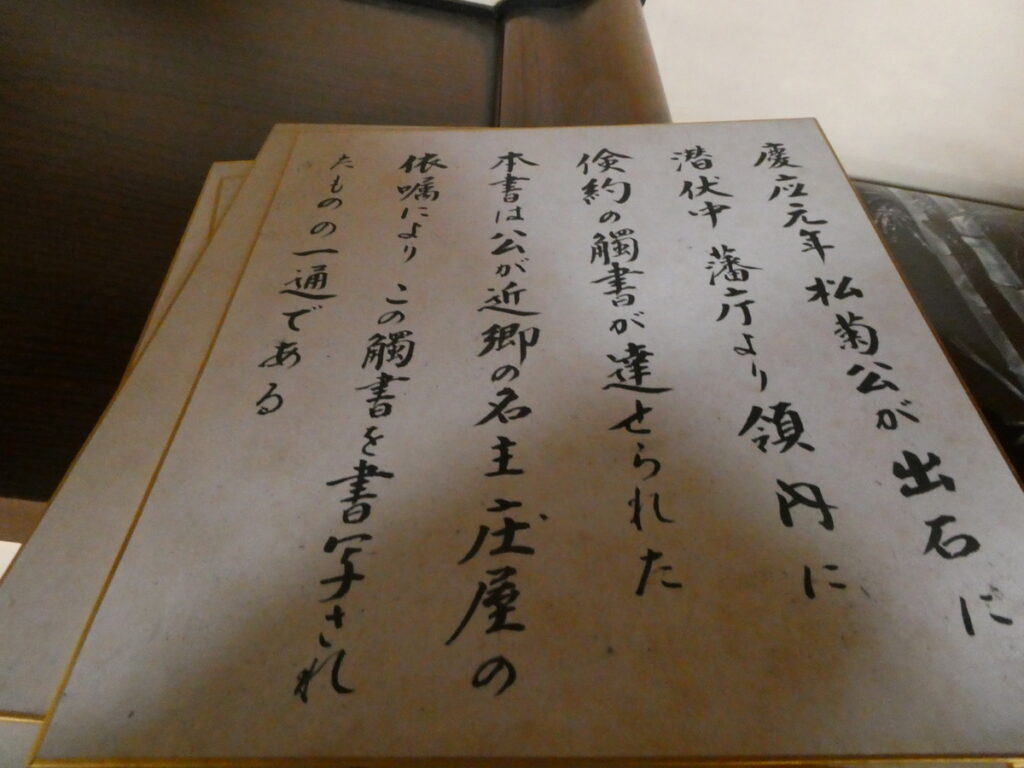 慶応元年松菊公が出石に
潜伏中藩庁より領内に
倹約の觸書が達せられた
本書は公が近郷の名主庄屋の
依嘱によりこの觸書を書写され
たものの一通である